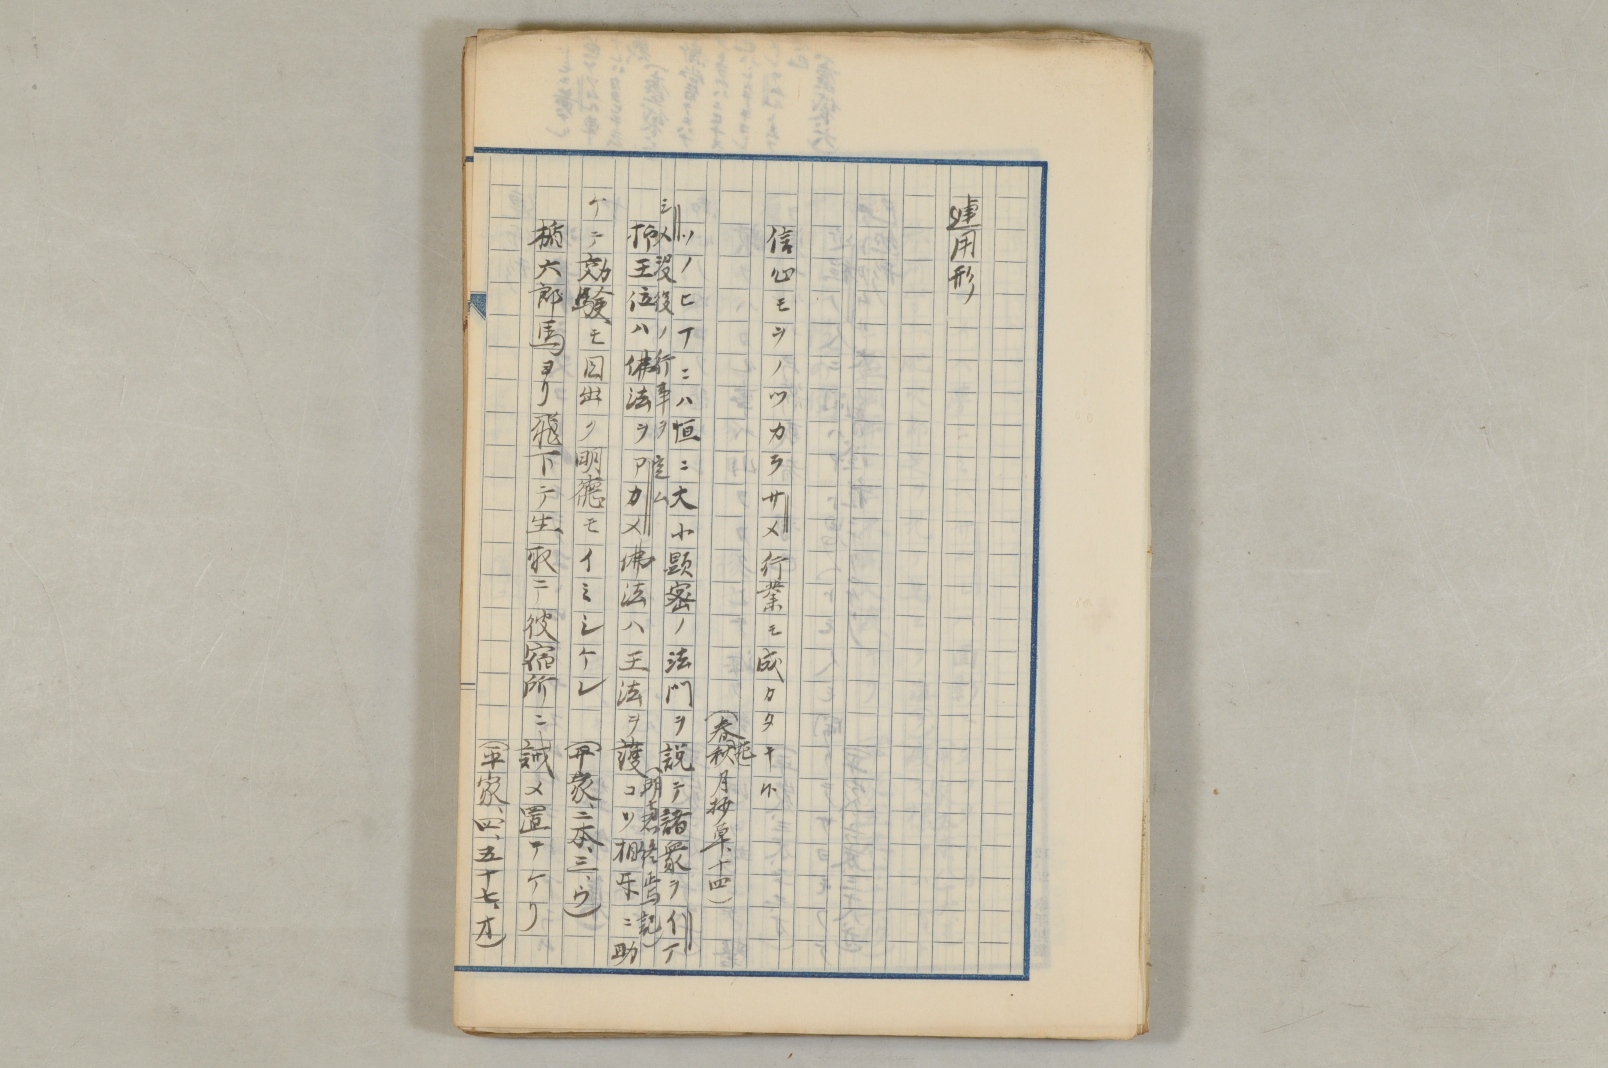 連用形
信心モヲノツカラサメ行業モ成カタキ㕝
(春秋花月抄草、十四)
ツノヒマニハ恒ニ大小顕密ノ法門ヲ説テ諸衆ヲイマ
シメ没後ノ行事ヲ定ム
抑王位ハ佛法ヲアカメ佛法ハ王法ヲ護コソ相互ニ助
ケテ効験モ目出ク明徳モイミシケレ
(平家、二本、三、ウ)
楯六郎馬ヨリ飛下テ生取ニ彼宿所ニ誡メ置テケリ
(平家、四、五十七、オ)